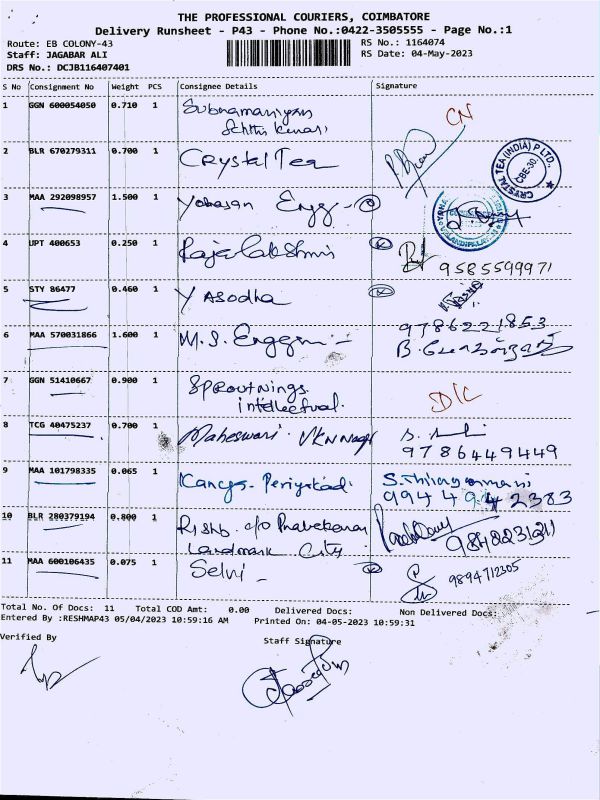 THE PROFESSIONAL COURIERS, COIMBATORE
Delivery Runsheet - P43 - Phone No.:0422-3505555 - Page No.:1
Route: EB COLONY-43
Staff: JAGABAR ALI
DRS No.: DCJB116407401
RS No.: 1164074
RS Date: 04-May-2023
S No Consignment No Weight PCS Consignee Details Signature
1 GGN 600054050 0.710 1 Subramaniyan
CN
2 BLR 670279311 0.700 1 Crystal Tea
CRYSTAL TEA (INDIA) P LTD., CBE-30.
3 MAA 292098957 1.500 1 Engg
4 UPT 400653 0.250 1 Rajalakshmi
9585599971
5 STY 86477 0.460 1 Yasodha
6 MAA 570031866 1.600 1 M.S. Enggm
9786221853
7 GGN 51410667 0.900 1 Sproutnings
intellectual.
D/C
8 TCG 40475237 0.700 1 Maheswari
9786449449
9 MAA 101798335 0.065 1
994 494 2383
10 BLR 280379194 0.800 1 c/o Prabakaran
Landmark City
11 MAA 600106435 0.075 1 Selvi
9894712305
Total No. Of Docs: 11 Total COD Amt: 0.00 Delivered Docs: Non Delivered Docs:
Entered By :RESHMAP43 05/04/2023 10:59:16 AM Printed On: 04-05-2023 10:59:31
Verified By
Staff Signature